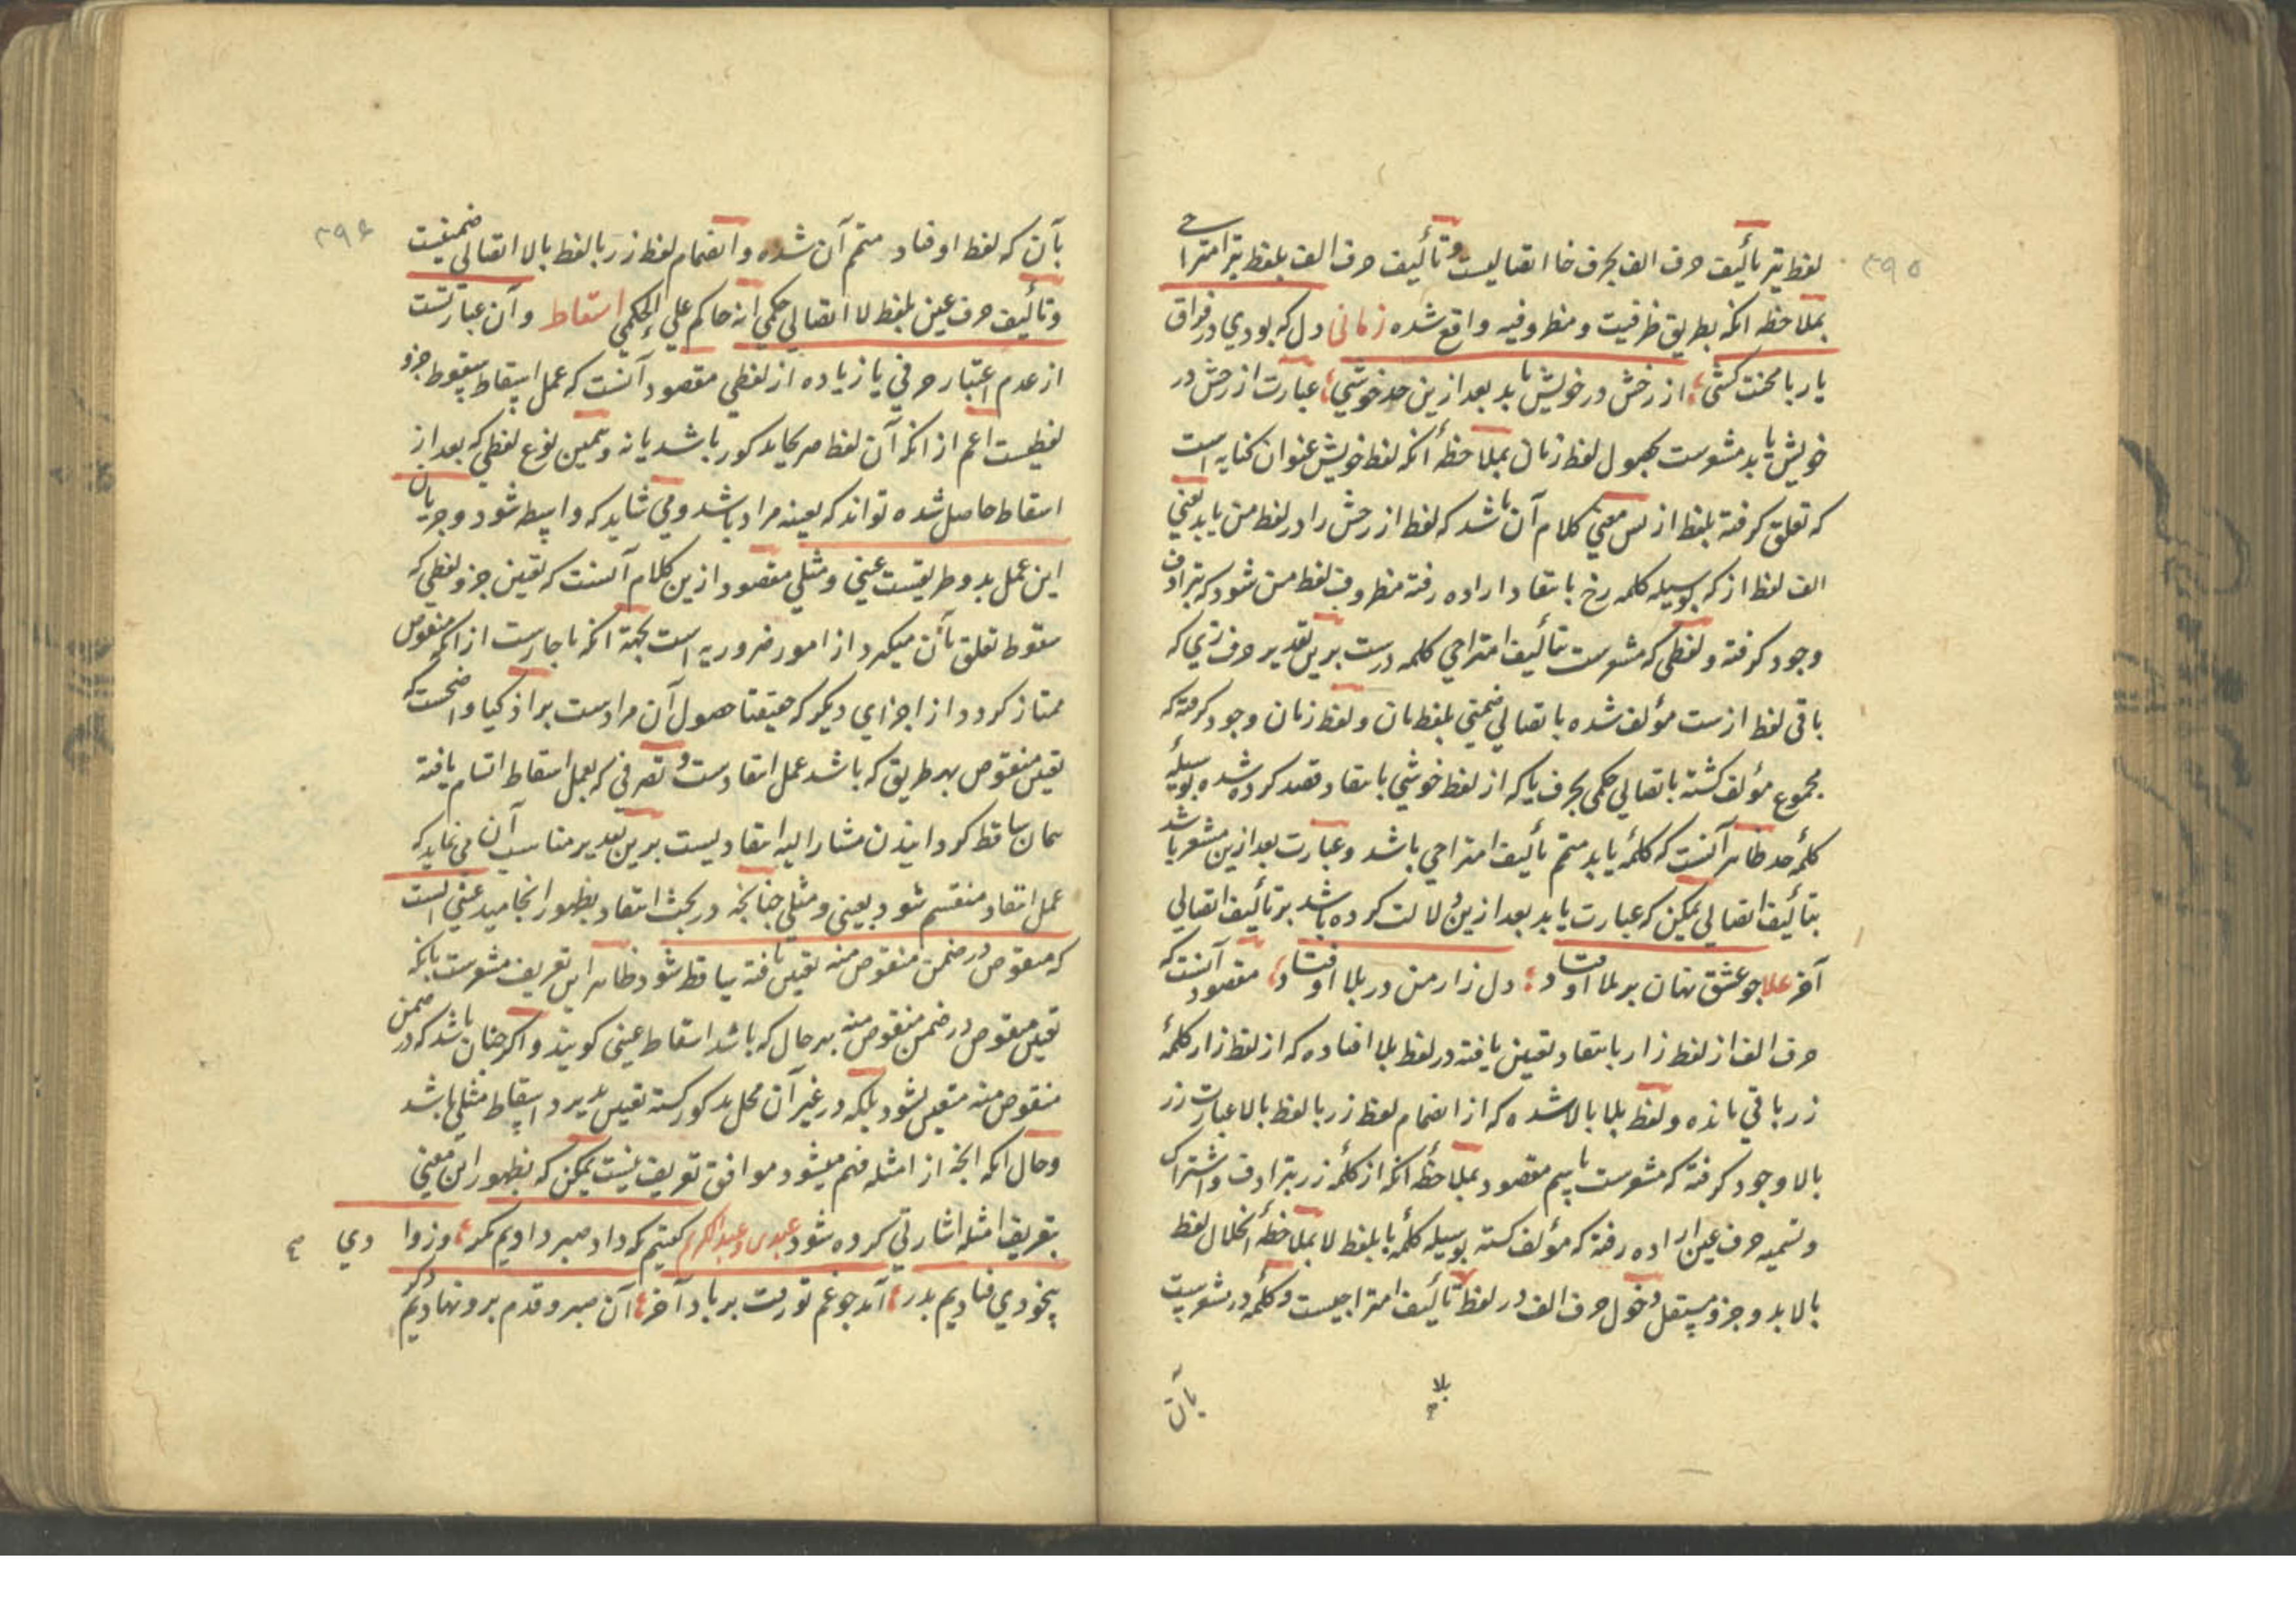 ۳۹۵
لفظ تیر تألیف حرف الف بحرف خا اتصالیست و تألیف حرف الف بلفظ تیر امتزاجی
بملاحظه انکه بطریق ظرفیت و مظروفیه واقع شده زمانی دل که بودی در فراق
یار با محنت کشی از رخش در خویش یابد بعد ازین حد خوشی عبارت از رخش در
خویش یابد مشعرست بحصول لفظ زمان بملاحظهٔ آنکه لفظ خویش عنوان کنایه است
که تعلق کرفته بلفظ از پس معنی کلام آن باشد که لفظ از رخش را در لفظ من یابد یعنی
الف لفظ از که بوسیله کلمه رخ بانتقاد اراده رفته مظروف لفظ من شود که بترادف
وجود کرفته و لفظی که مشعرست بتألیف امتزاجی کلمه درست برین تقدیر حرف زی که
باقی لفظ ازست مؤلف شده باتصالی ضمنی بلفظ مان و لفظ زمان وجود کرفته که
مجموع مؤلف کشته باتصالی حکمی بحرف یا که از لفظ خوشی بانتقاد قصد کرده شده بوسیلهٔ
کلمهٔ حد ظاهر آنست که کلمهٔ یابد متمم تألیف امتزاجی باشد و عبارت بعد ازین مشعر باشد
بتألیف اتصالی یمکن که عبارت یابد بعد ازین دلالت کرده باشد بر تألیف اتصالی
آخر علا جو عشق نهان برملا اوفتاد دل زار من در بلا اوفتاد مقصود آنست که
حرف الف از لفظ زار بانتقاد تعیین یافته در لفظ بلا افتاده که از لفظ زار کلمهٔ
زر باقی مانده و لفظ بلا بالا شده که از انضمام لفظ زر با لفظ بالا عبارت زر
بالا وجود کرفته که مشعرست باسم مقصود بملاحظهٔ آنکه از کلمهٔ زر بترادف و اشتراک
و تسمیه حرف عین اراده رفته که مؤلف کشته بوسیله کلمهٔ با بلفظ لا بملاحظهٔ انحلال لفظ
بالا بدو جزو مستقل دخول حرف الف در لفظ بلا تألیف امتزاجیست و کلمهٔ در مشعرست
بلا
بآن
۳۹۶
بآن که لفظ اوفتاد متمم آن شده و انضمام لفظ زر با لفظ بالا اتصالی ضمنیست
و تألیف حرف عین بلفظ لا اتصالی حکمی انه حاکم علی الحکمی اسقاط و آن عبارتست
از عدم اعتبار حرفی یا زیاده از لفظی مقصود آنست که عمل اسقاط سقوط جزو
لفظیست اعم از انکه آن لفظ صریحا مذکور باشد یا نه و همین نوع لفظی که بعد از
اسقاط حاصل شده تواند که بعینه مراد باشد و می شاید که واسطه شود و جریان
این عمل بدو طریقست عینی و مثلی مقصود ازین کلام آنست که تعیین جزو لفظی که
سقوط تعلق بآن میکیرد از امور ضروریه است بجهة انکه ناچارست از انکه منقوص
ممتاز کردد از اجزای دیکر که حقیقتا حصول آن مرادست بر اذکیا واضحست که
تعیین منقوص بهر طریق که باشد عمل انتقادست و تصرفی که بعمل اسقاط اتسام یافته
همان ساقط کردانیدن مشار الیه انتقادیست برین تقدیر مناسب آن می نماید که
عمل انتقاد منقسم شود بعینی و مثلی چنانچه در بحث انتقاد بظهور انجامید عینی انست
که منقوص در ضمن منقوص منه تعیین یافته ساقط شود ظاهر این تعریف مشعرست بانکه
تعیین منقوص در ضمن منقوص منه بهر حال که باشد اسقاط عینی کویند و اکر چنان باشد که در ضمن
منقوص منه متعین نشود بلکه در غیر آن محل مذکور کشته تعیین پذیرد اسقاط مثلی باشد
و حال انکه انچه از امثله فهم میشود موافق تعریف نیست یمکن که بظهور این معنی
بتعریف امثله اشارتی کرده شود عبدی و عبدالکریم کفتیم که داد صبر دادیم مکر وز وادی
بیخودی فتادیم بدر آمد جو غم تو رفت بر باد آخر آن صبر و قدم برو نهادیم دکر